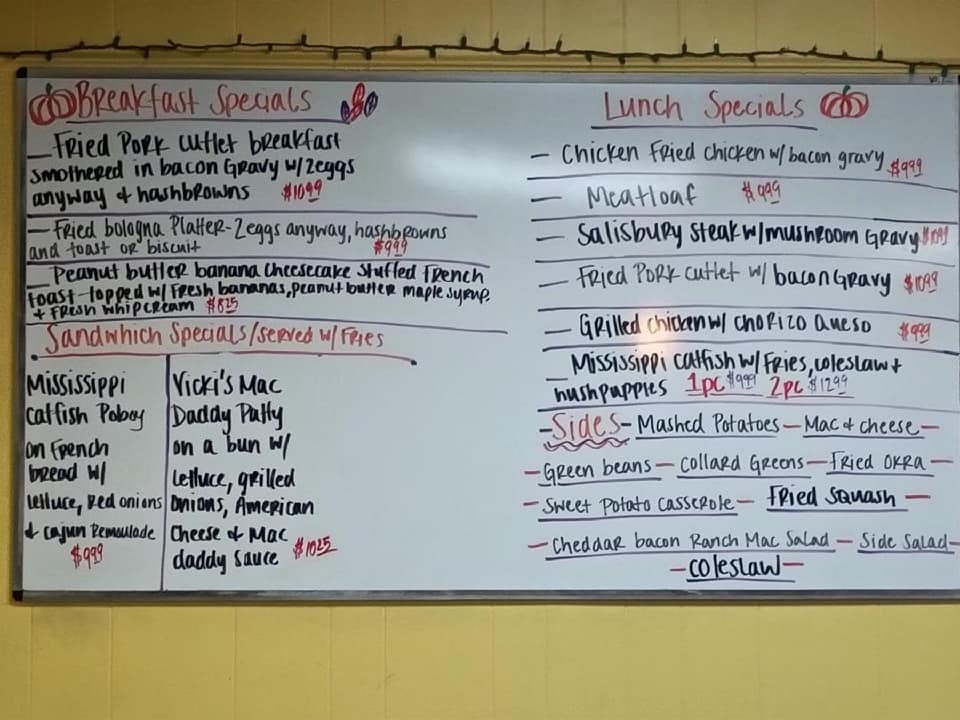 Breakfast Specials
— Fried Pork cutlet breakfast
smothered in bacon Gravy w/ 2eggs
anyway & hashbrowns $10.99
— Fried bologna Platter- 2eggs anyway, hashbrowns
and toast or biscuit $9.99
— Peanut butter banana Cheesecake Stuffed French
toast-topped w/ Fresh bananas, peanut butter maple syrup,
+ Fresh whip cream $8.25
Sandwhich Specials/served w/ Fries
Mississippi
Catfish Poboy
on French
bread w/
lettuce, Red onions
& cajun Remoulade
$9.99
Vicki's Mac
Daddy Patty
on a bun w/
lettuce, grilled
onions, American
Cheese & Mac
daddy sauce $10.25
Lunch Specials
— Chicken Fried chicken w/ bacon gravy $9.99
— Meatloaf $9.99
— Salisbury Steak w/ mushroom Gravy
— Fried Pork cutlet w/ bacon Gravy $10.99
— Grilled chicken w/ chorizo Queso $9.99
— Mississippi catfish w/ Fries, coleslaw +
hushpuppies 1pc $9.99 2pc $12.99
-Sides- Mashed Potatoes — Mac & cheese —
— Green beans — Collard Greens — Fried Okra —
— Sweet Potato Casserole — Fried Squash —
— Cheddar bacon Ranch Mac Salad — Side Salad —
— Coleslaw —